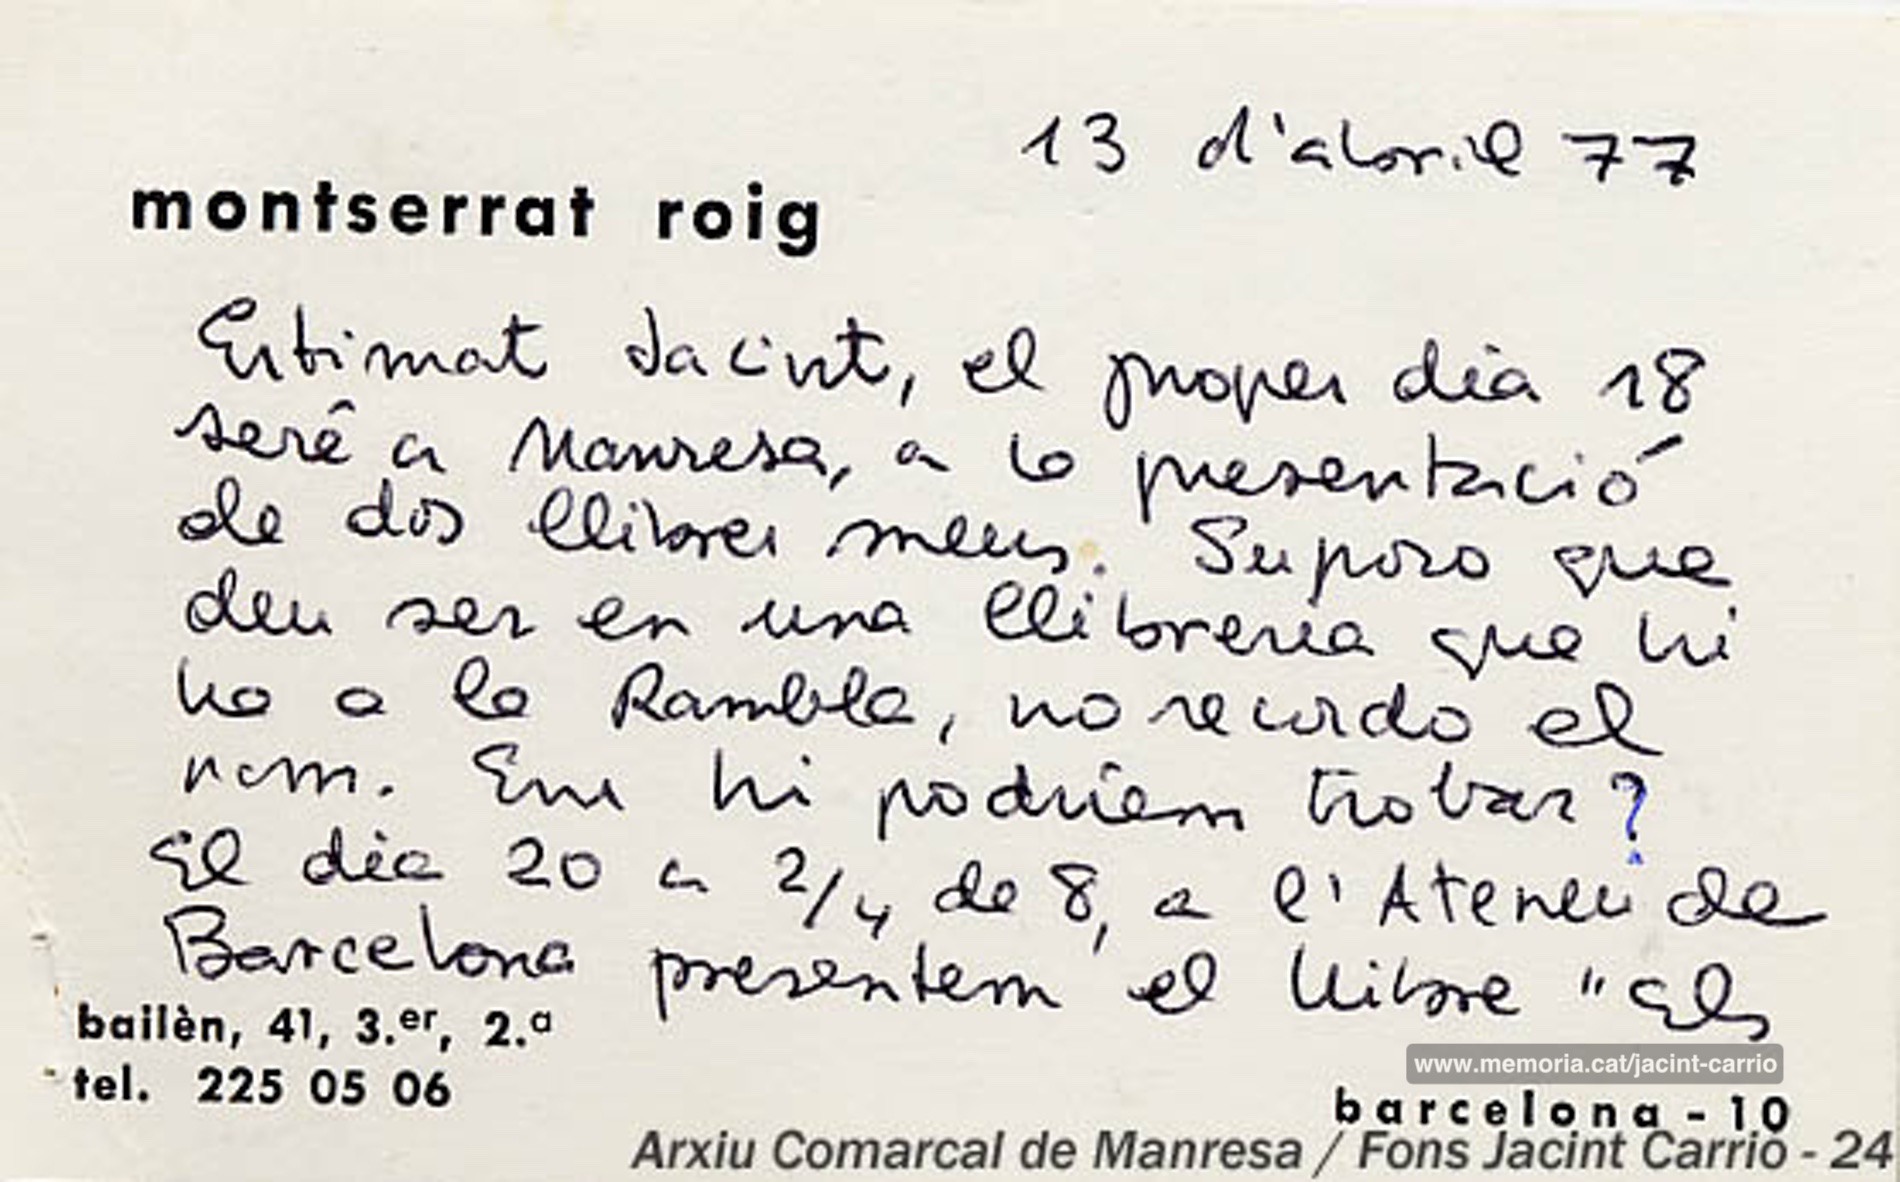 13 d'abril 77
montserrat roig
Estimat Jacint, el proper dia 18
seré a Manresa, a la presentació
de dos llibres meus. Suposo que
deu ser en una llibreria que hi
ha a la Rambla, no recordo el
nom. Ens hi podríem trobar?
El dia 20 a 2/4 de 8, a l'Ateneu de
Barcelona presentem el llibre "Els
bailèn, 41, 3.er, 2.a
tel. 225 05 06
www.memoria.cat/jacint-carrio
barcelona - 10
Arxiu Comarcal de Manresa / Fons Jacint Carrio - 24